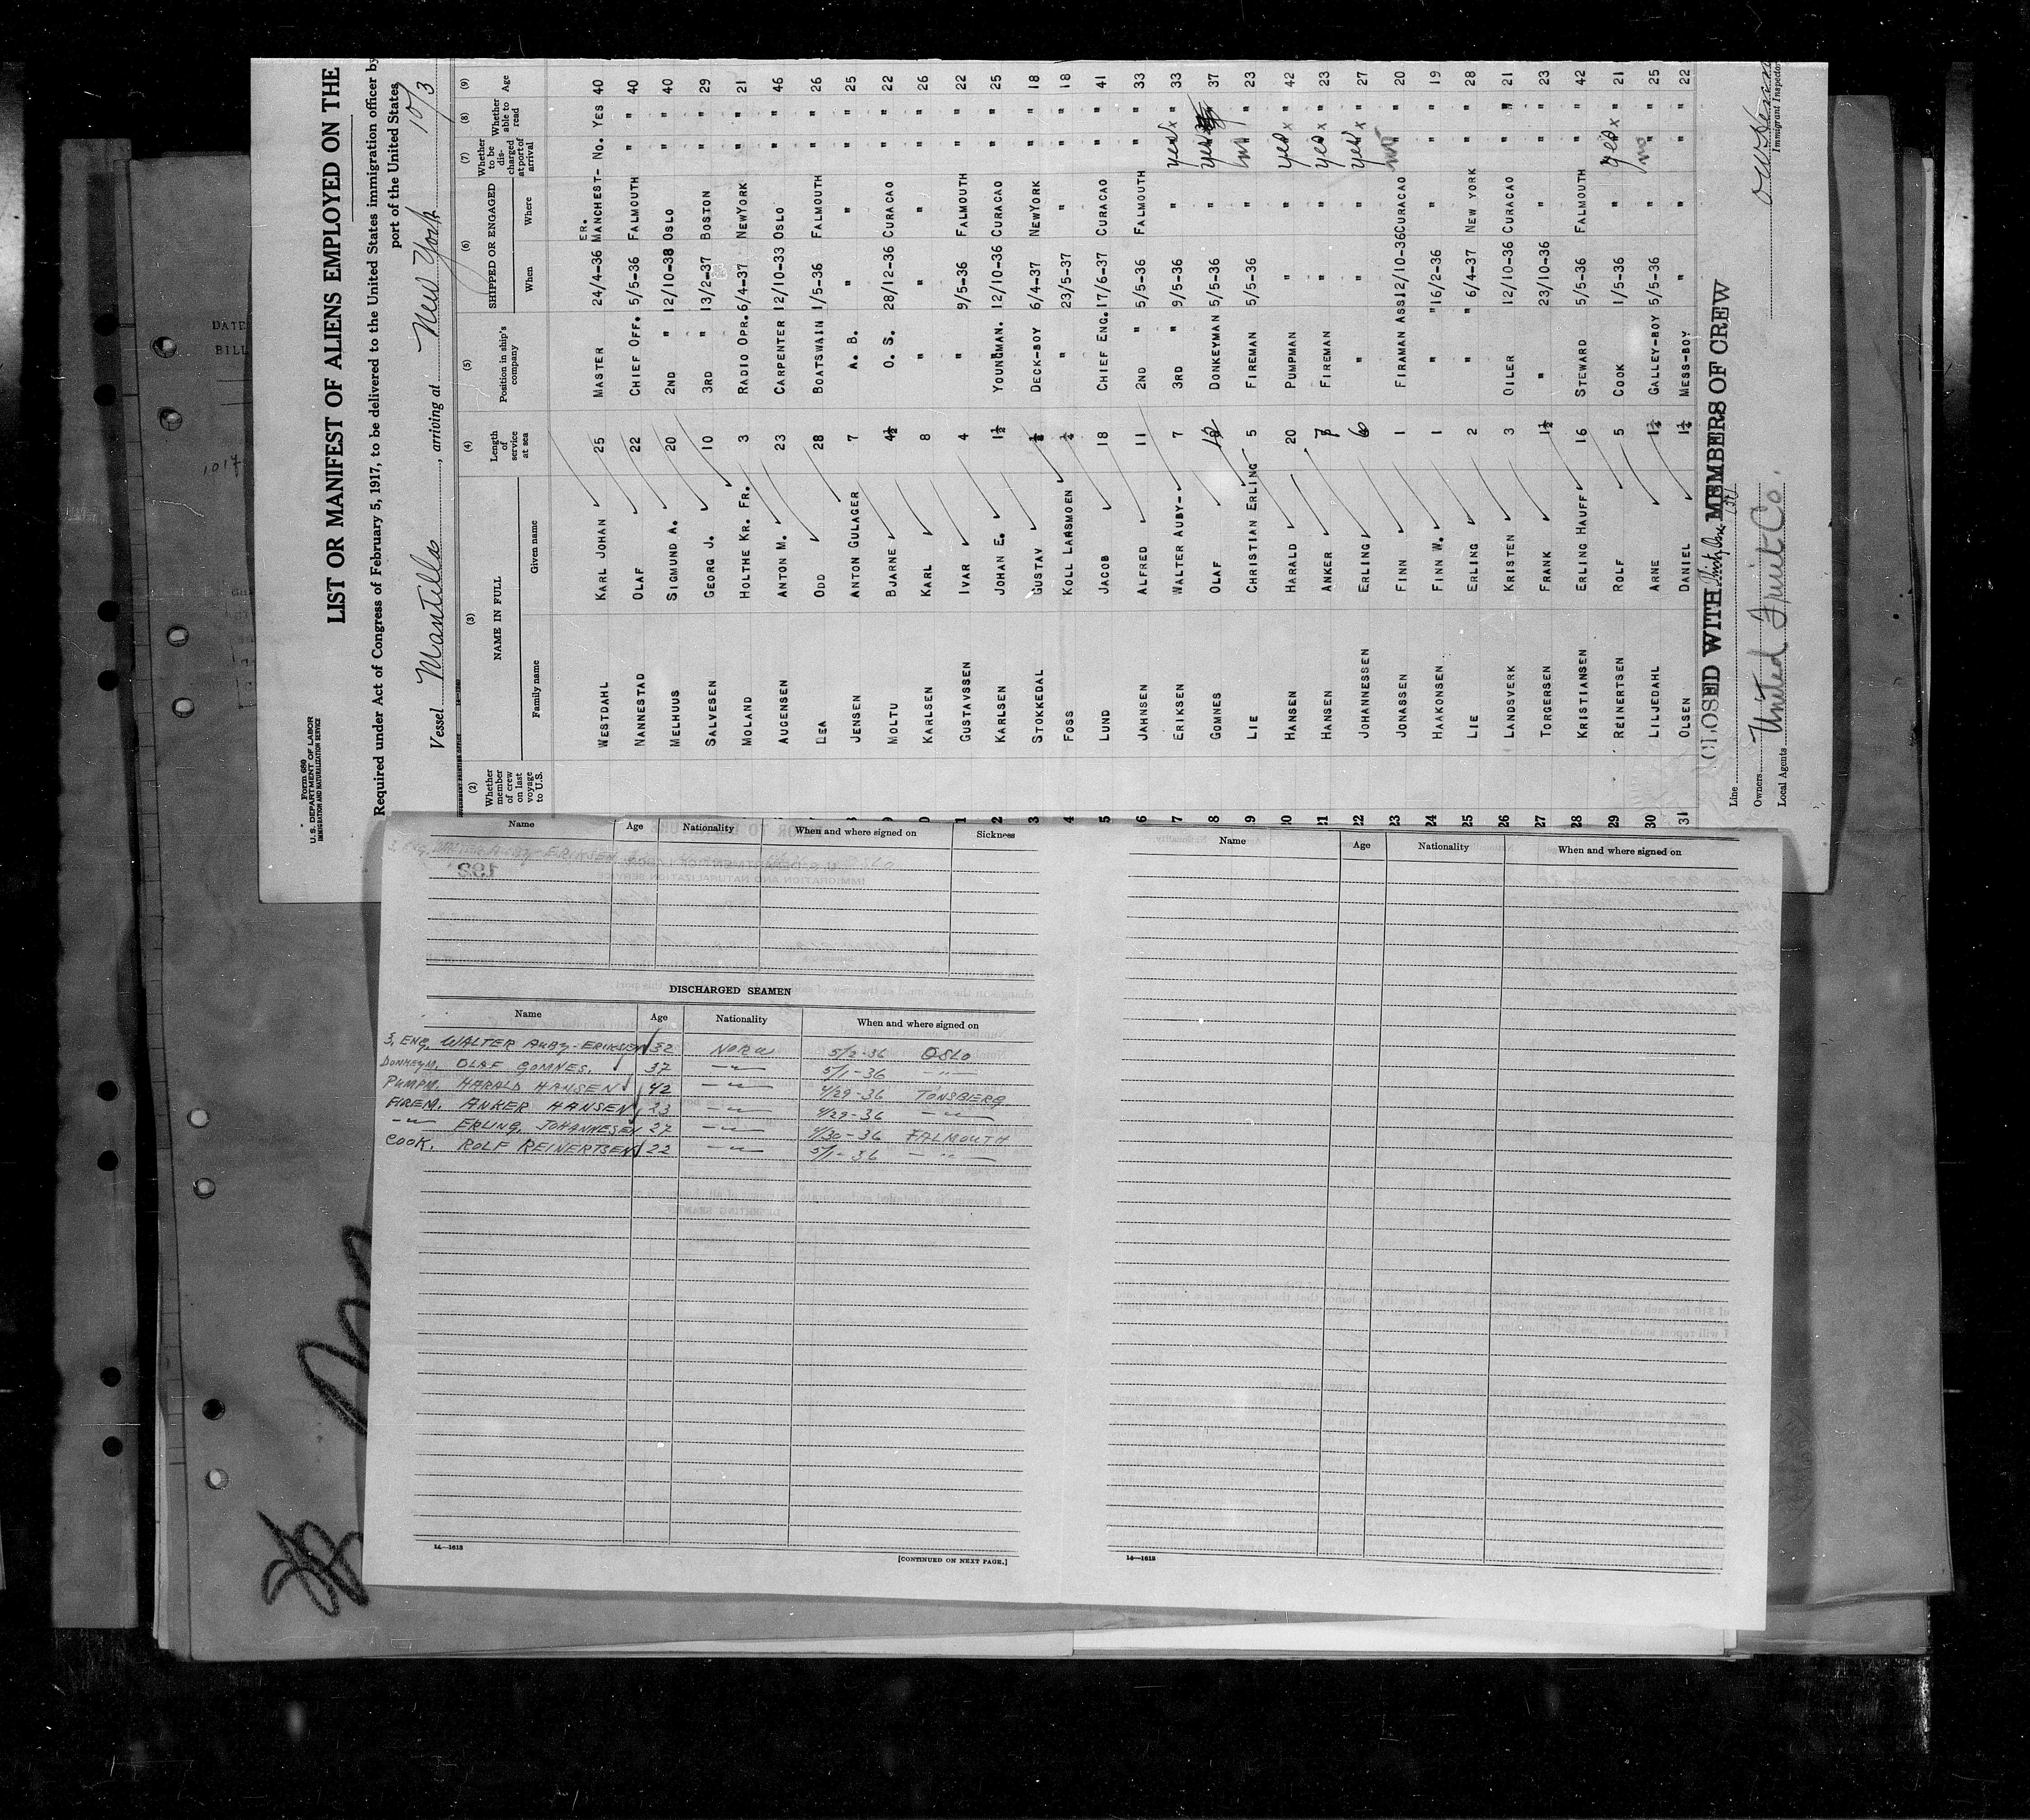 Form 680
U. S. DEPARTMENT OF LABOR
IMMIGRATION AND NATURALIZATION SERVICE
LIST OR MANIFEST OF ALIENS EMPLOYED ON THE
Required under Act of Congress of February 5, 1917, to be delivered to the United States immigration officer by
port of the United States
Vessel Mantilla, arriving at New York 10/3
(2) (3) (4) (5) (6) (7) (8) (9)
Whether member of crew on last voyage to U.S. NAME IN FULL Family name Given name Length of service at sea Position in ship's company SHIPPED OR ENGAGED When Where Whether to be discharged at port of arrival Whether able to read Age
WESTDAHL KARL JOHAN 25 MASTER 24/4-36 MANCHEST-ER. No. YES 40
NANNESTAD OLAF 22 CHIEF OFF. 5/5-36 FALMOUTH " " 40
MELHUUS SIGMUND A. 20 2ND " 12/10-38 OSLO " " 40
SALVESEN GEORG J. 10 3RD " 13/2-37 BOSTON " " 29
MOLAND HOLTHE KR. FR. 3 RADIO OPR. 6/4-37 NEWYORK " " 21
AUGENSEN ANTON M. 23 CARPENTER 12/10-33 OSLO " " 46
LEA ODD 28 BOATSWAIN 1/5-36 FALMOUTH " " 26
JENSEN ANTON GULAGER 7 A. B. " " " " 25
MOLTU BJARNE 4½ O. S. 28/12-36 CURACAO " " 22
KARLSEN KARL 8 " " " " " 26
1 GUSTAVSSEN IVAR 4 " 9/5-36 FALMOUTH " " 22
2 KARLSEN JOHAN E. 1½ YOUNGMAN. 12/10-36 CURACAO " " 25
3 STOKKEDAL GUSTAV DECK-BOY 6/4-37 NEWYORK " " 18
4 FOSS KOLL LAASMOEN " 23/5-37 " " " 18
5 LUND JACOB 18 CHIEF ENG. 17/6-37 CURACAO " " 41
6 JAHNSEN ALFRED 11 2ND " 5/5-36 FALMOUTH " " 33
7 ERIKSEN WALTER AUBY- 7 3RD " 9/5-36 " yes x " 33
8 GOMNES OLAF DONKEYMAN 5/5-36 " yes 37
9 LIE CHRISTIAN ERLING 5 FIREMAN 5/5-36 " no " 23
10 HANSEN HARALD 20 PUMPMAN " " yes x " 42
11 HANSEN ANKER FIREMAN " " yes x " 23
22 JOHANNESSEN ERLING 6 " " " yes x " 27
23 JONASSEN FINN 1 FIRAMAN ASS. 12/10-36 CURACAO no " 20
24 HAAKONSEN FINN W. 1 " " 16/2-36 " " " 19
25 LIE ERLING 2 " " 6/4-37 NEW YORK " " 28
26 LANDSVERK KRISTEN 3 OILER 12/10-36 CURACAO " " 21
27 TORGERSEN FRANK 1½ " 23/10-36 " " " 23
28 KRISTIANSEN ERLING HAUFF 16 STEWARD 5/5-36 FALMOUTH " " 42
29 REINERTSEN ROLF 5 COOK 1/5-36 " yes x " 21
30 LILJEDAHL ARNE 1½ GALLEY-BOY 5/5-36 " no " 25
31 OLSEN DANIEL 1½ MESS-BOY " " " " 22
CLOSED WITH MEMBERS OF CREW
Line
Owners
Local Agents United Fruit Co.
Immigrant Inspector
DATE
BILL
Name Age Nationality When and where signed on Sickness
DISCHARGED SEAMEN
Name Age Nationality When and where signed on
3, ENG. WALTER AUBY-ERIKSEN 32 NORW 5/2-36 OSLO
DONKEYM. OLAF GOMNES. 37 -"- 5/1-36 -"-
PUMPM. HARALD HANSEN 42 -"- 4/29-36 TONSBERG
FIREM. ANKER HANSEN 23 -"- 4/29-36 -"-
-"- ERLING. JOHANNESEN 27 -"- 4/30-36 FALMOUTH
COOK. ROLF REINERTSEN 22 -"- 5/1-36 -"-
14—1618
[CONTINUED ON NEXT PAGE.]
Name Age Nationality When and where signed on
14—1618